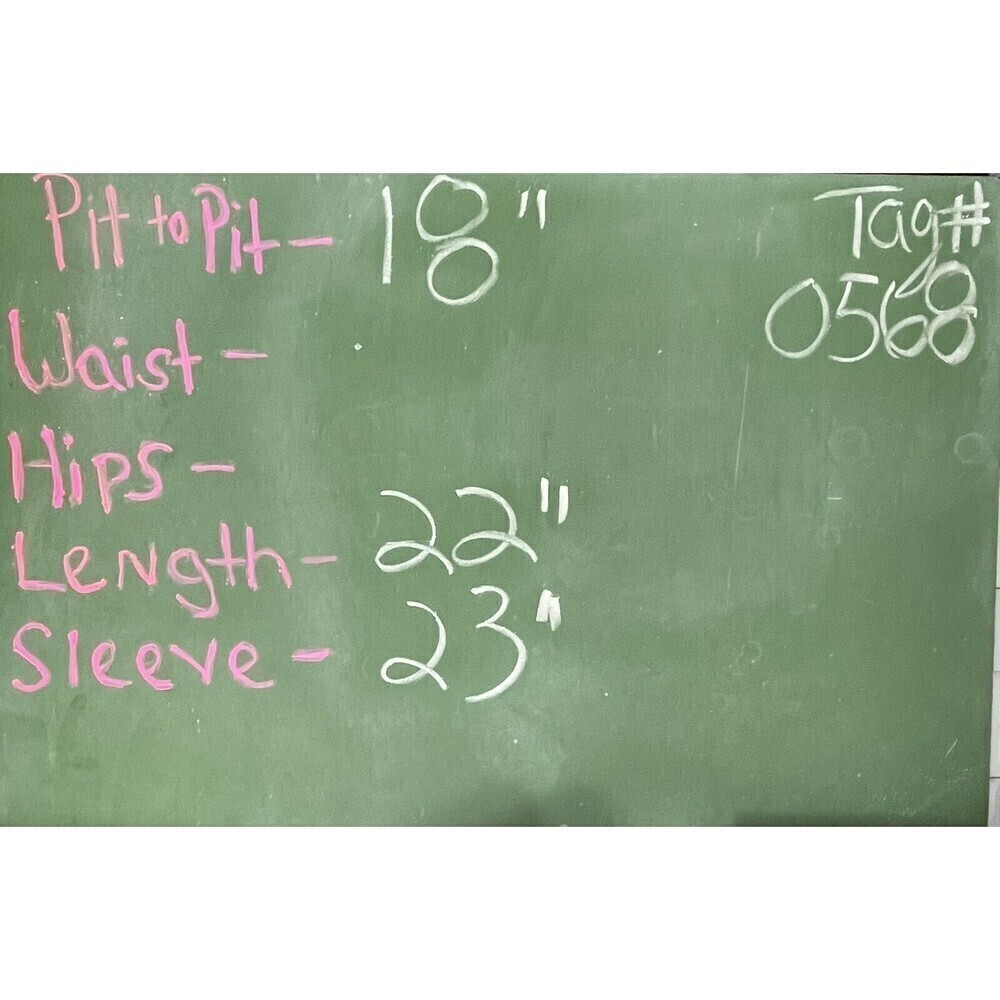 Pit to Pit - 18" Tag#
0568
Waist -
Hips -
Length - 22"
Sleeve - 23"